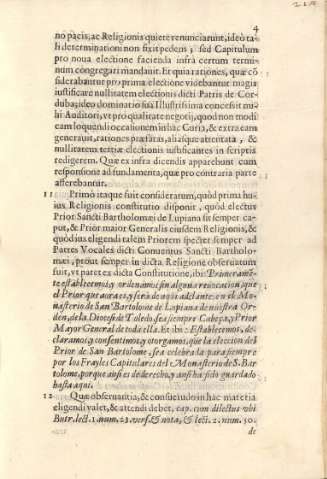 4
no pacis, ac Religionis quiete renunciarunt, ideò ta-
li determinationi non stixit pedem; sed Capitulum
pro noua electione facienda infra certum termi-
num congregari mandauit. Et quia rationes, quæ cõ
siderabantur pro prima electione videbantur magis
iustificare nullitatem electionis dicti Patris de Cor-
duba; ideo dominatio sua Illustrissima concessit mi-
hi Auditori, vt pro qualitate negotij, quod non modi
eam loquendi occasionem in hac Curia, & extra eam
generauit, rationes præfatas, aliasque attentata, &
nullitatem tertiæ electionis iustificantes in scriptis
redigerem. Quæ ex infra dicendis apparebunt cum
responsione ad fundamenta, quæ pro contraria parte
afferebantur.
11 Primò itaque fuit consideratum, quòd prima hu
ius Religionis constitutio disponit, quòd electus
Prior Sancti Bartholomæi de Lupiana sit semper ca-
put, & Prior maior Generalis eiusdem Religionis, &
quòd ius eligendi talem Priorem spectet semper ad
Patres Vocales dicti Conuentus Sancti Bartholo-
mæi, prout semper in dicta Religione obseruatum
fuit, vt patet ex dicta Constitutione, ibi: Primeramẽ-
te establecemos, y ordenamos sin alguna reuocacion, que
el Prior que aora es, y serà de aqui adelante en el Mo-
nasterio de San Bartolome de Lupiana de nuestra Or-
den, de la Diocesi de Toledo sea siempre Cabeça, y Prior
Mayor General de toda ella. Et ibi: Establecemos, de-
claramos, y consentimos, y otorgamos, que la eleccion del
Prior de San Bartolome, sea celebrada para siempre
por los Frayles Capitulares del Monasterio de S. Bar
tolome, porque aun es de derecho, y aun ha sido guardado
hasta aqui.
12 Quæ obseruantia, & consuetudo in hac materia
eligendi valet, & attendi debet, cap. cum dilectus vbi
Butr. lect. 1. num. 23. vers. & nota, & lect. 2. num. 30.
de